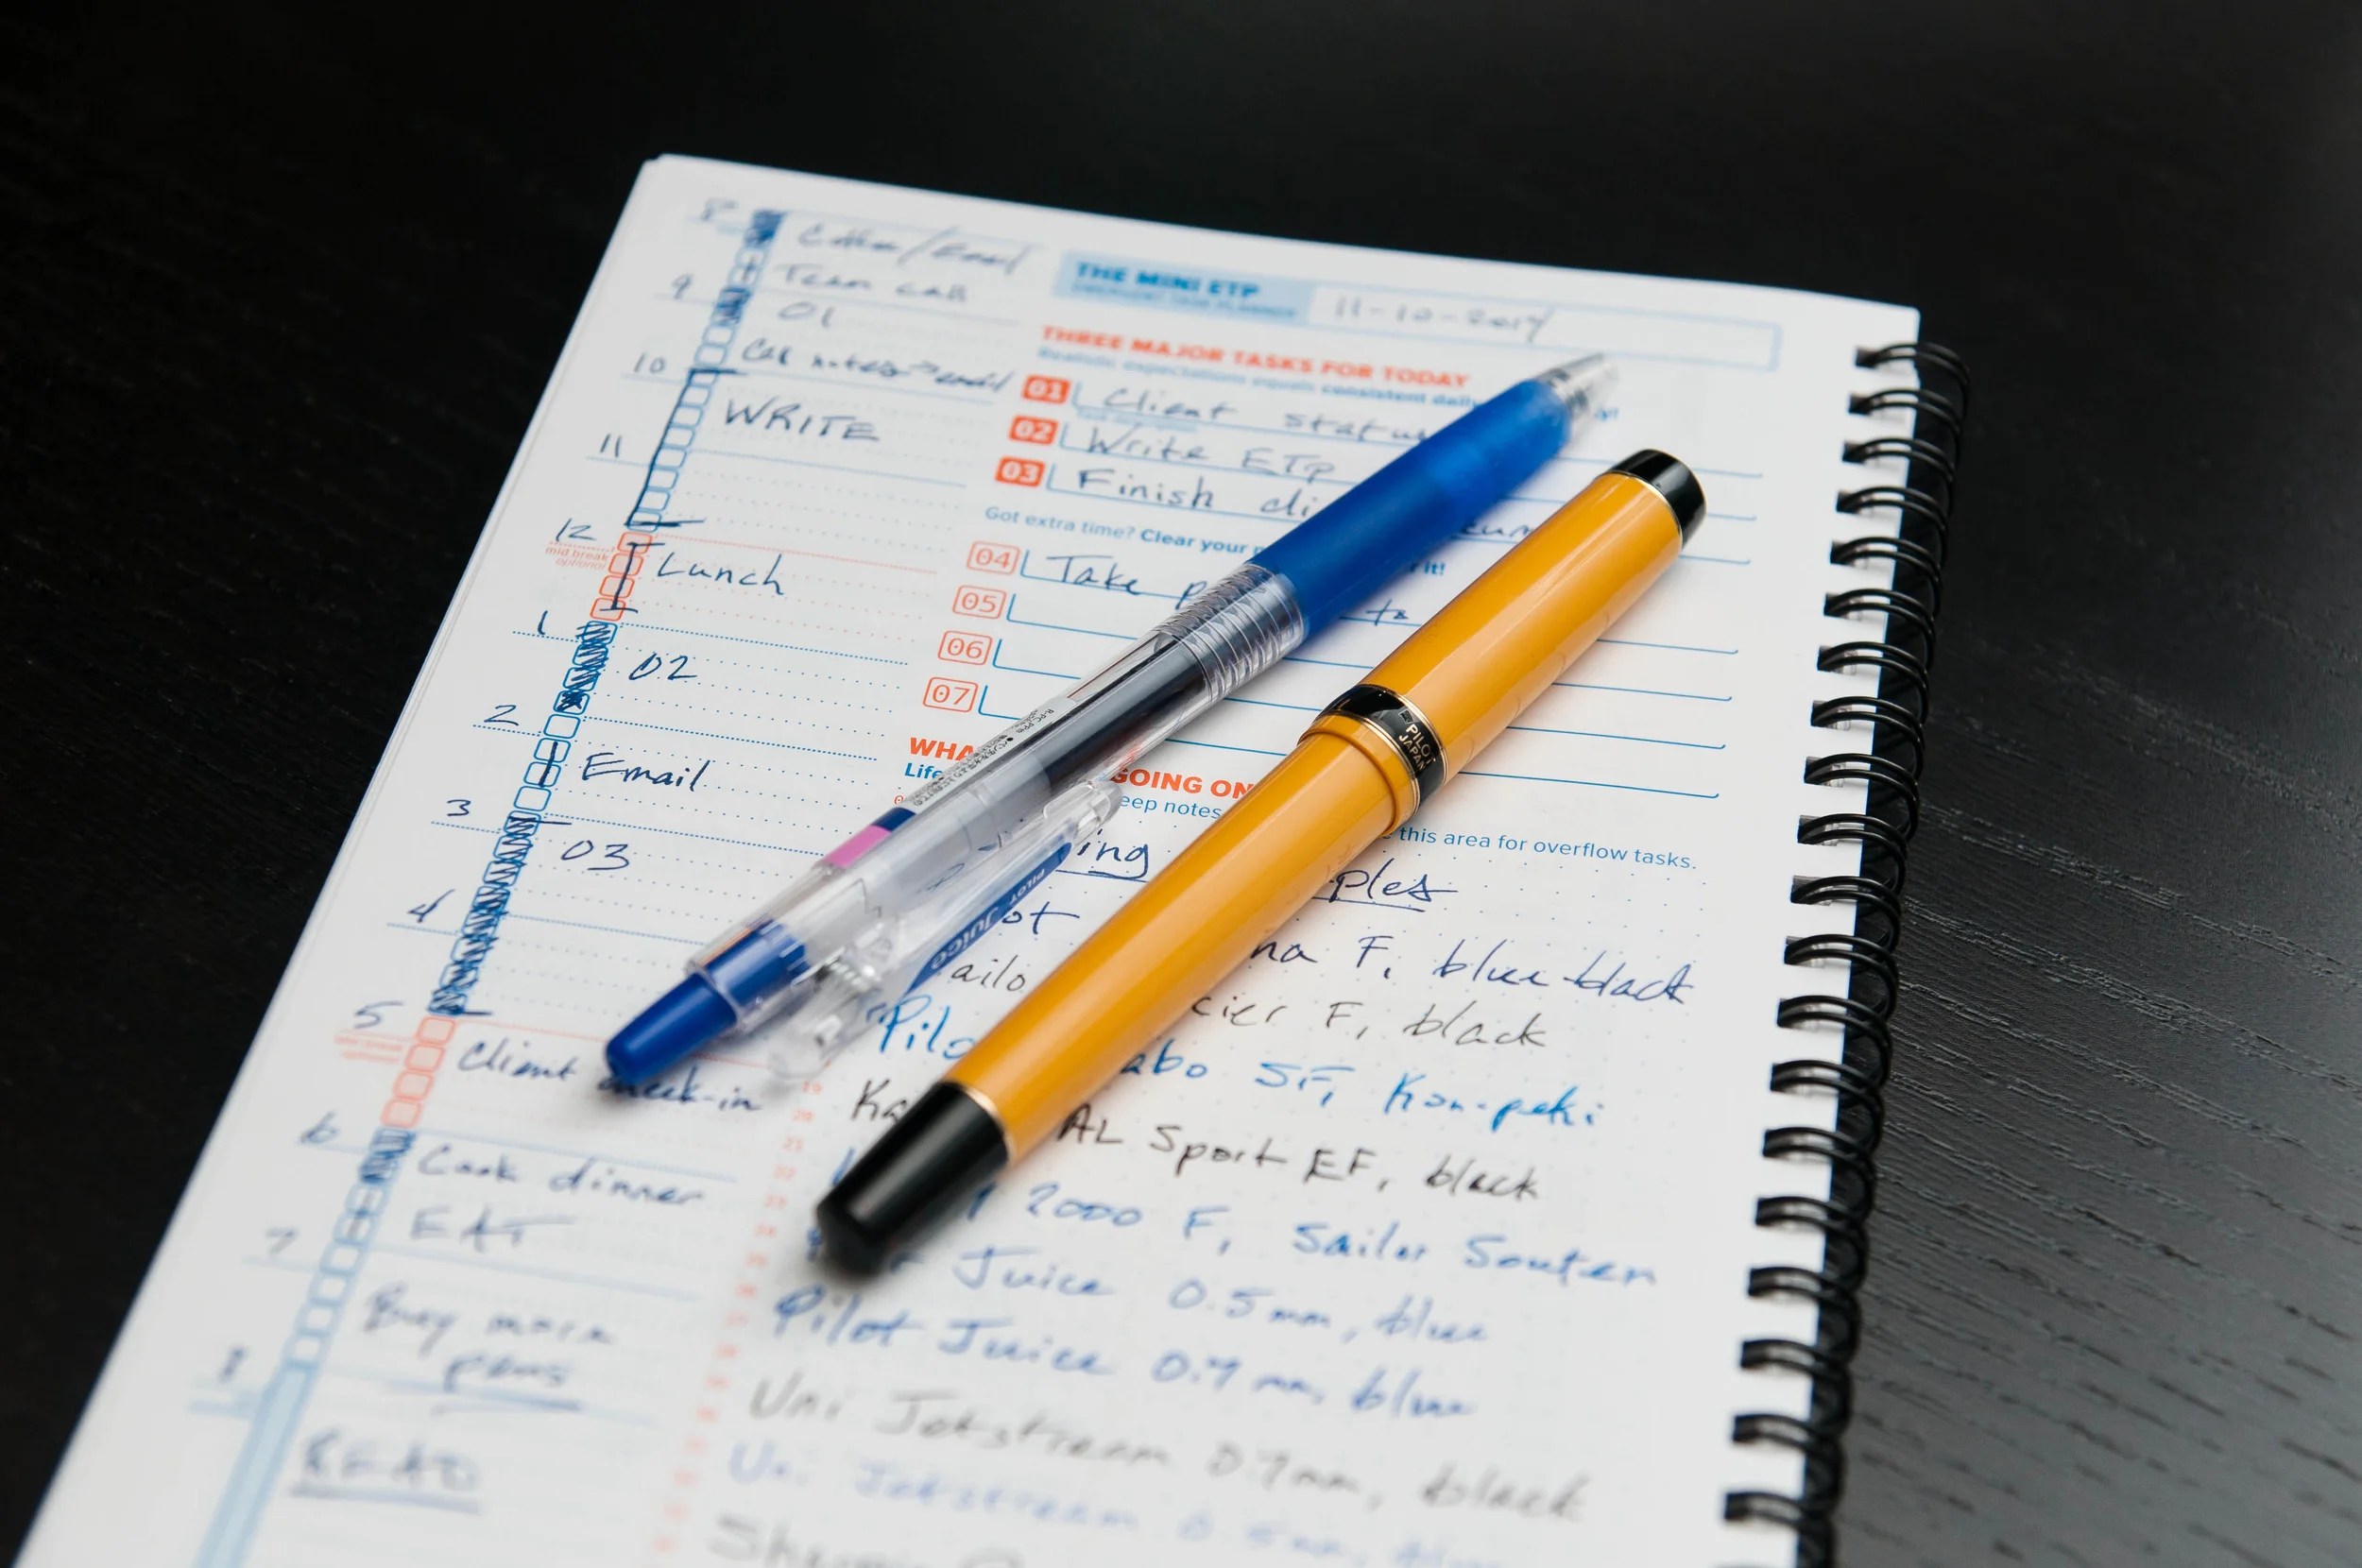 8
Coffee/Email
9
Team call
01
10
Call notes → email
WRITE
11
12
mid break
optional
Lunch
1
02
2
Email
3
03
4
5
Client check-in
6
Cook dinner
EAT
7
Buy more
pens
8
READ
THE MINI ETP
EMERGENT TASK PLANNER
11-10-2017
THREE MAJOR TASKS FOR TODAY
Realistic expectations equals consistent daily
01 Client status
02 Write ETP
03 Finish cli
Got extra time? Clear your it!
04 Take to
05
06
07
WHA GOING ON
Life eep notes this area for overflow tasks.
ing ples
ot na F, blue-black
ailo cier F, black
Pilo abo SF, Kon-peki
Ka AL Sport EF, black
2000 F, Sailor Souten
Juice 0.5mm, blue
Pilot Juice 0.7mm, blue
Uni Jetstream 0.7mm, black
Uni Jetstream 0.5mm, blue
PILOT
JAPAN
PILOT Juice